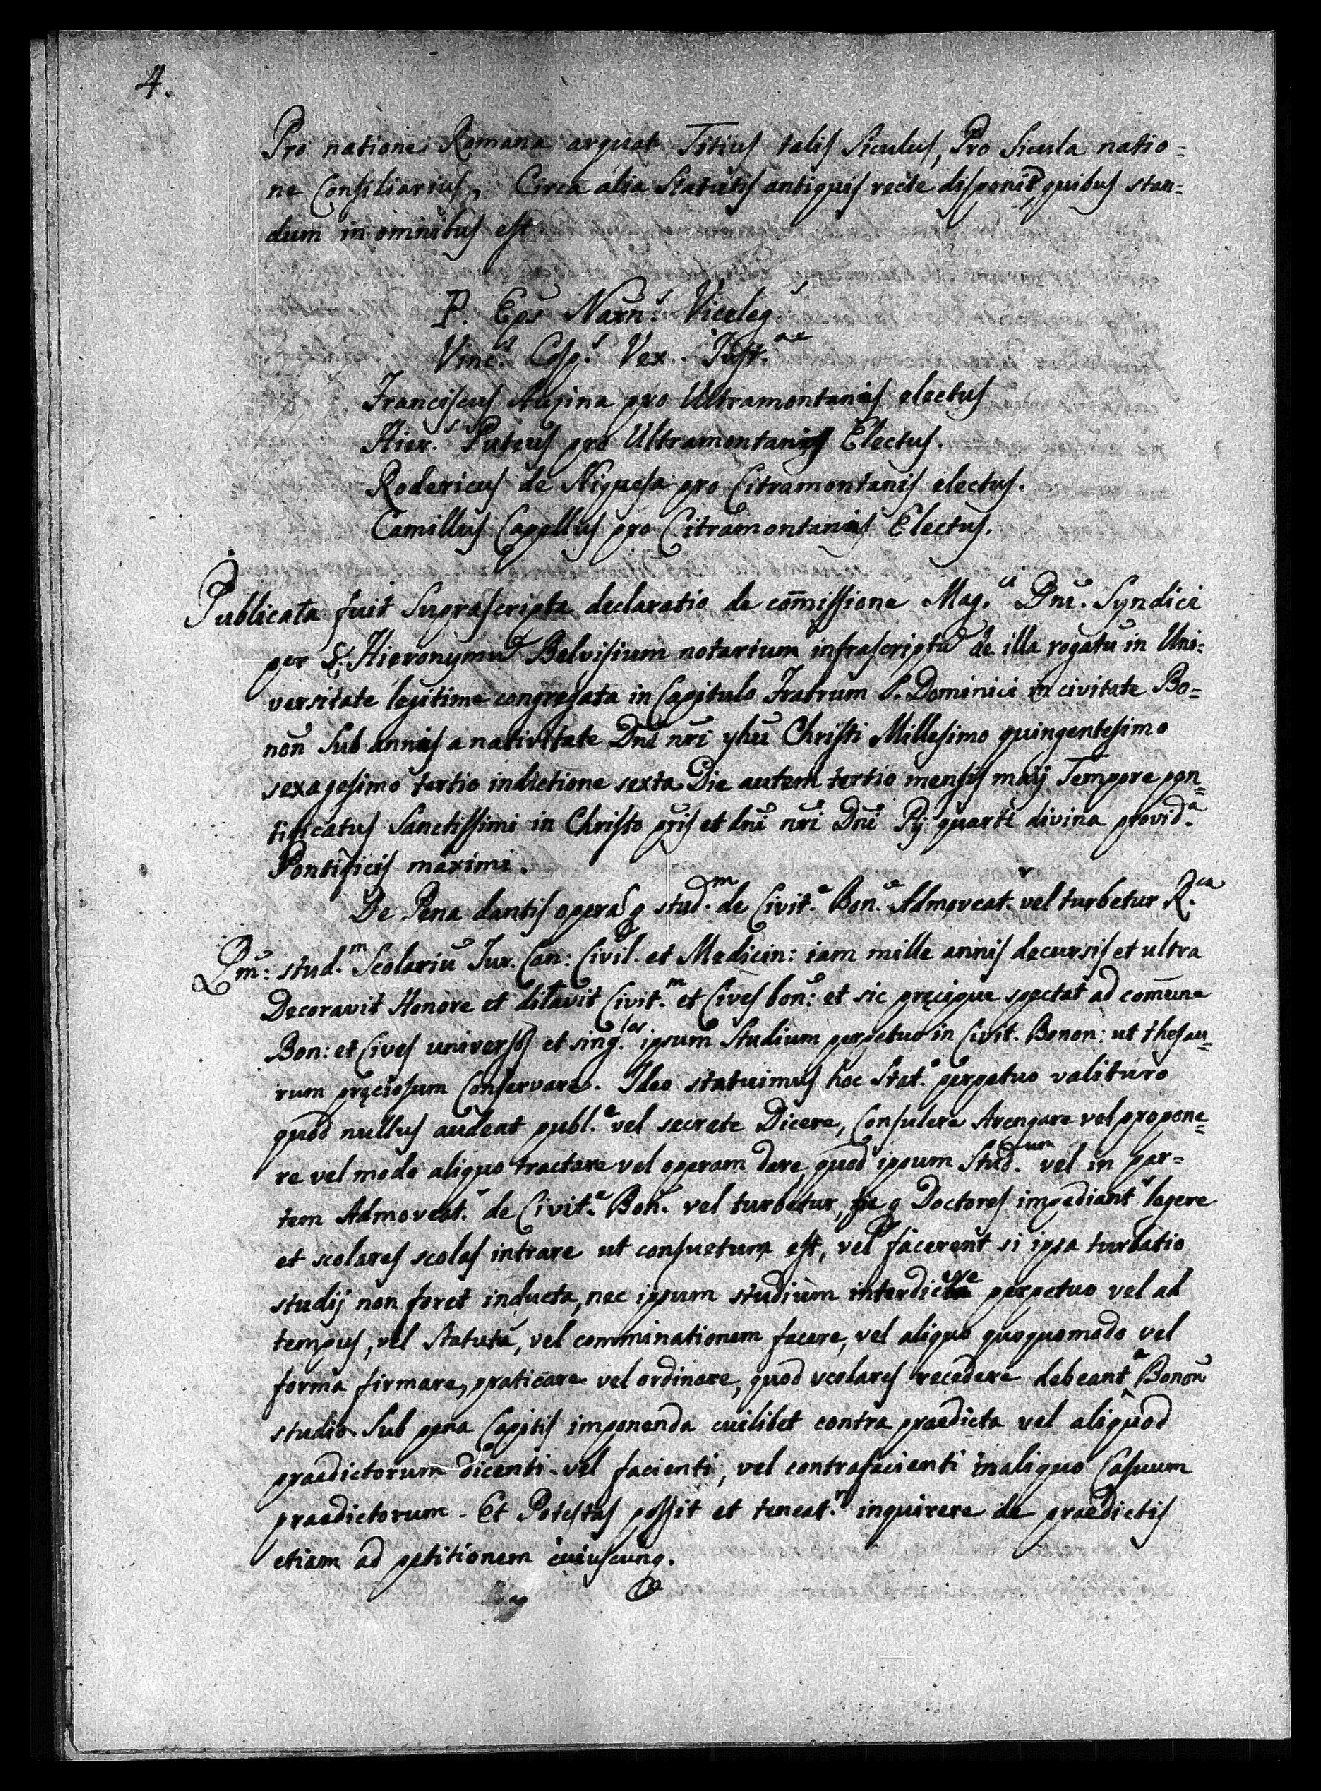 4.
Pro natione Romana arguat Titius talis Siculus, Pro Sicula natio=
ne Consiliarius, Circa alia Statutis antiquis recte disponit, quibus stan=
dum in omnibus est
P. Eps Narn. Viceleg.
Vinc. Cosp. Vex. Just.ae
Franciscus Regina pro Ultramontanis electus
Hier. Puteus pro Ultramontanis Electus.
Rodericus de Niquesa pro Citramontanis electus.
Camillus Capellus pro Citramontanis Electus.
Publicata fuit Suprascripta declaratio de com̄issione Mag. Dni. Syndici
per S. Hieronymu Belvisium notarium infrascriptu de illa rogatu in Uni=
versitate legitime congregata in Capitulo Fratrum S. Dominici in civitate Bo=
non Sub annis a nativitate Dni nri yhu Christi Millesimo quingentesimo
sexagesimo tertio indictione sexta Die autem tertio mensis maij Tempore pon=
tificatus Sanctissimi in Christo pris et dni nri Dni Pij quarti divina provid.a
Pontificis maximi.
De Pena dantis opera q stud.m de Civit.e Bon.e Admoveat. vel turbetur R.ca
Qm: stud.m Scolariu Jur. Can: Civil. et Medicin: iam mille annis decursis et ultra
Decoravit Honore et ditavit Civit.m et Cives bon: et sic pręcipue spectat ad com̄une
Bon: et Cives universos et sing.los ipsum Studium perpetuo in Civit. Bonon: ut thesau=
rum pręciosum Conservare. Ideo statuimus hoc Stat.o perpetuo valituro
quod nullus audeat publ.e vel secrete Dicere, Consulere Arengare vel propone=
re vel modo aliquo tractare vel operam dare quod ipsum Stud.um vel in par=
tem Admoveat. de Civit.e Bon. vel turbetur, q Doctores impediant legere
et scolares scolas intrare ut consuetum est, vel facerent si ipsa turbatio
studij non foret inducta, nec ipsum studium interdicere perpetuo vel ad
tempus, vel Statutu, vel comminationem facere, vel aliquo quoquomodo vel
forma firmare, praticare vel ordinare, quod scolares recedere debeant a Bonon
studio Sub pena Capitis imponenda cuilibet contra praedicta vel aliquod
praedictorum dicenti vel facienti, vel contrafacienti in aliquo Casuum
praedictorum. Et Potestas possit et teneat.r inquirere de praedictis
etiam ad petitionem cuiuscunq.